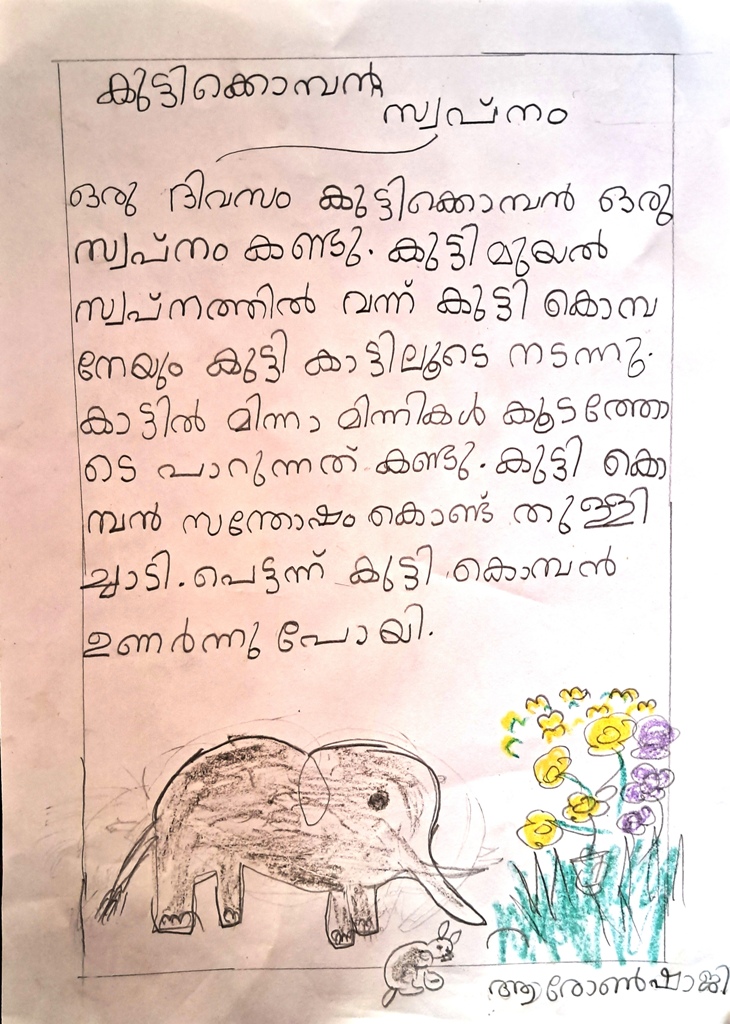 കുട്ടിക്കൊമ്പൻ്റ
സ്വപ്നം
ഒരു ദിവസം കുട്ടിക്കൊമ്പൻ ഒരു
സ്വപ്നം കണ്ടു. കുട്ടി മുയൽ
സ്വപ്നത്തിൽ വന്ന് കുട്ടി കൊമ്പ
നേയും കൂട്ടി കാട്ടിലൂടെ നടന്നു.
കാട്ടിൽ മിന്നാ മിന്നികൾ കൂട്ടത്തോ
ടെ പാറുന്നത് കണ്ടു. കുട്ടി കൊ
മ്പൻ സന്തോഷം കൊണ്ട് തുള്ളി
ച്ചാടി. പെട്ടന്ന് കുട്ടി കൊമ്പൻ
ഉണർന്നു പോയി.
ആരോൺഷാജി